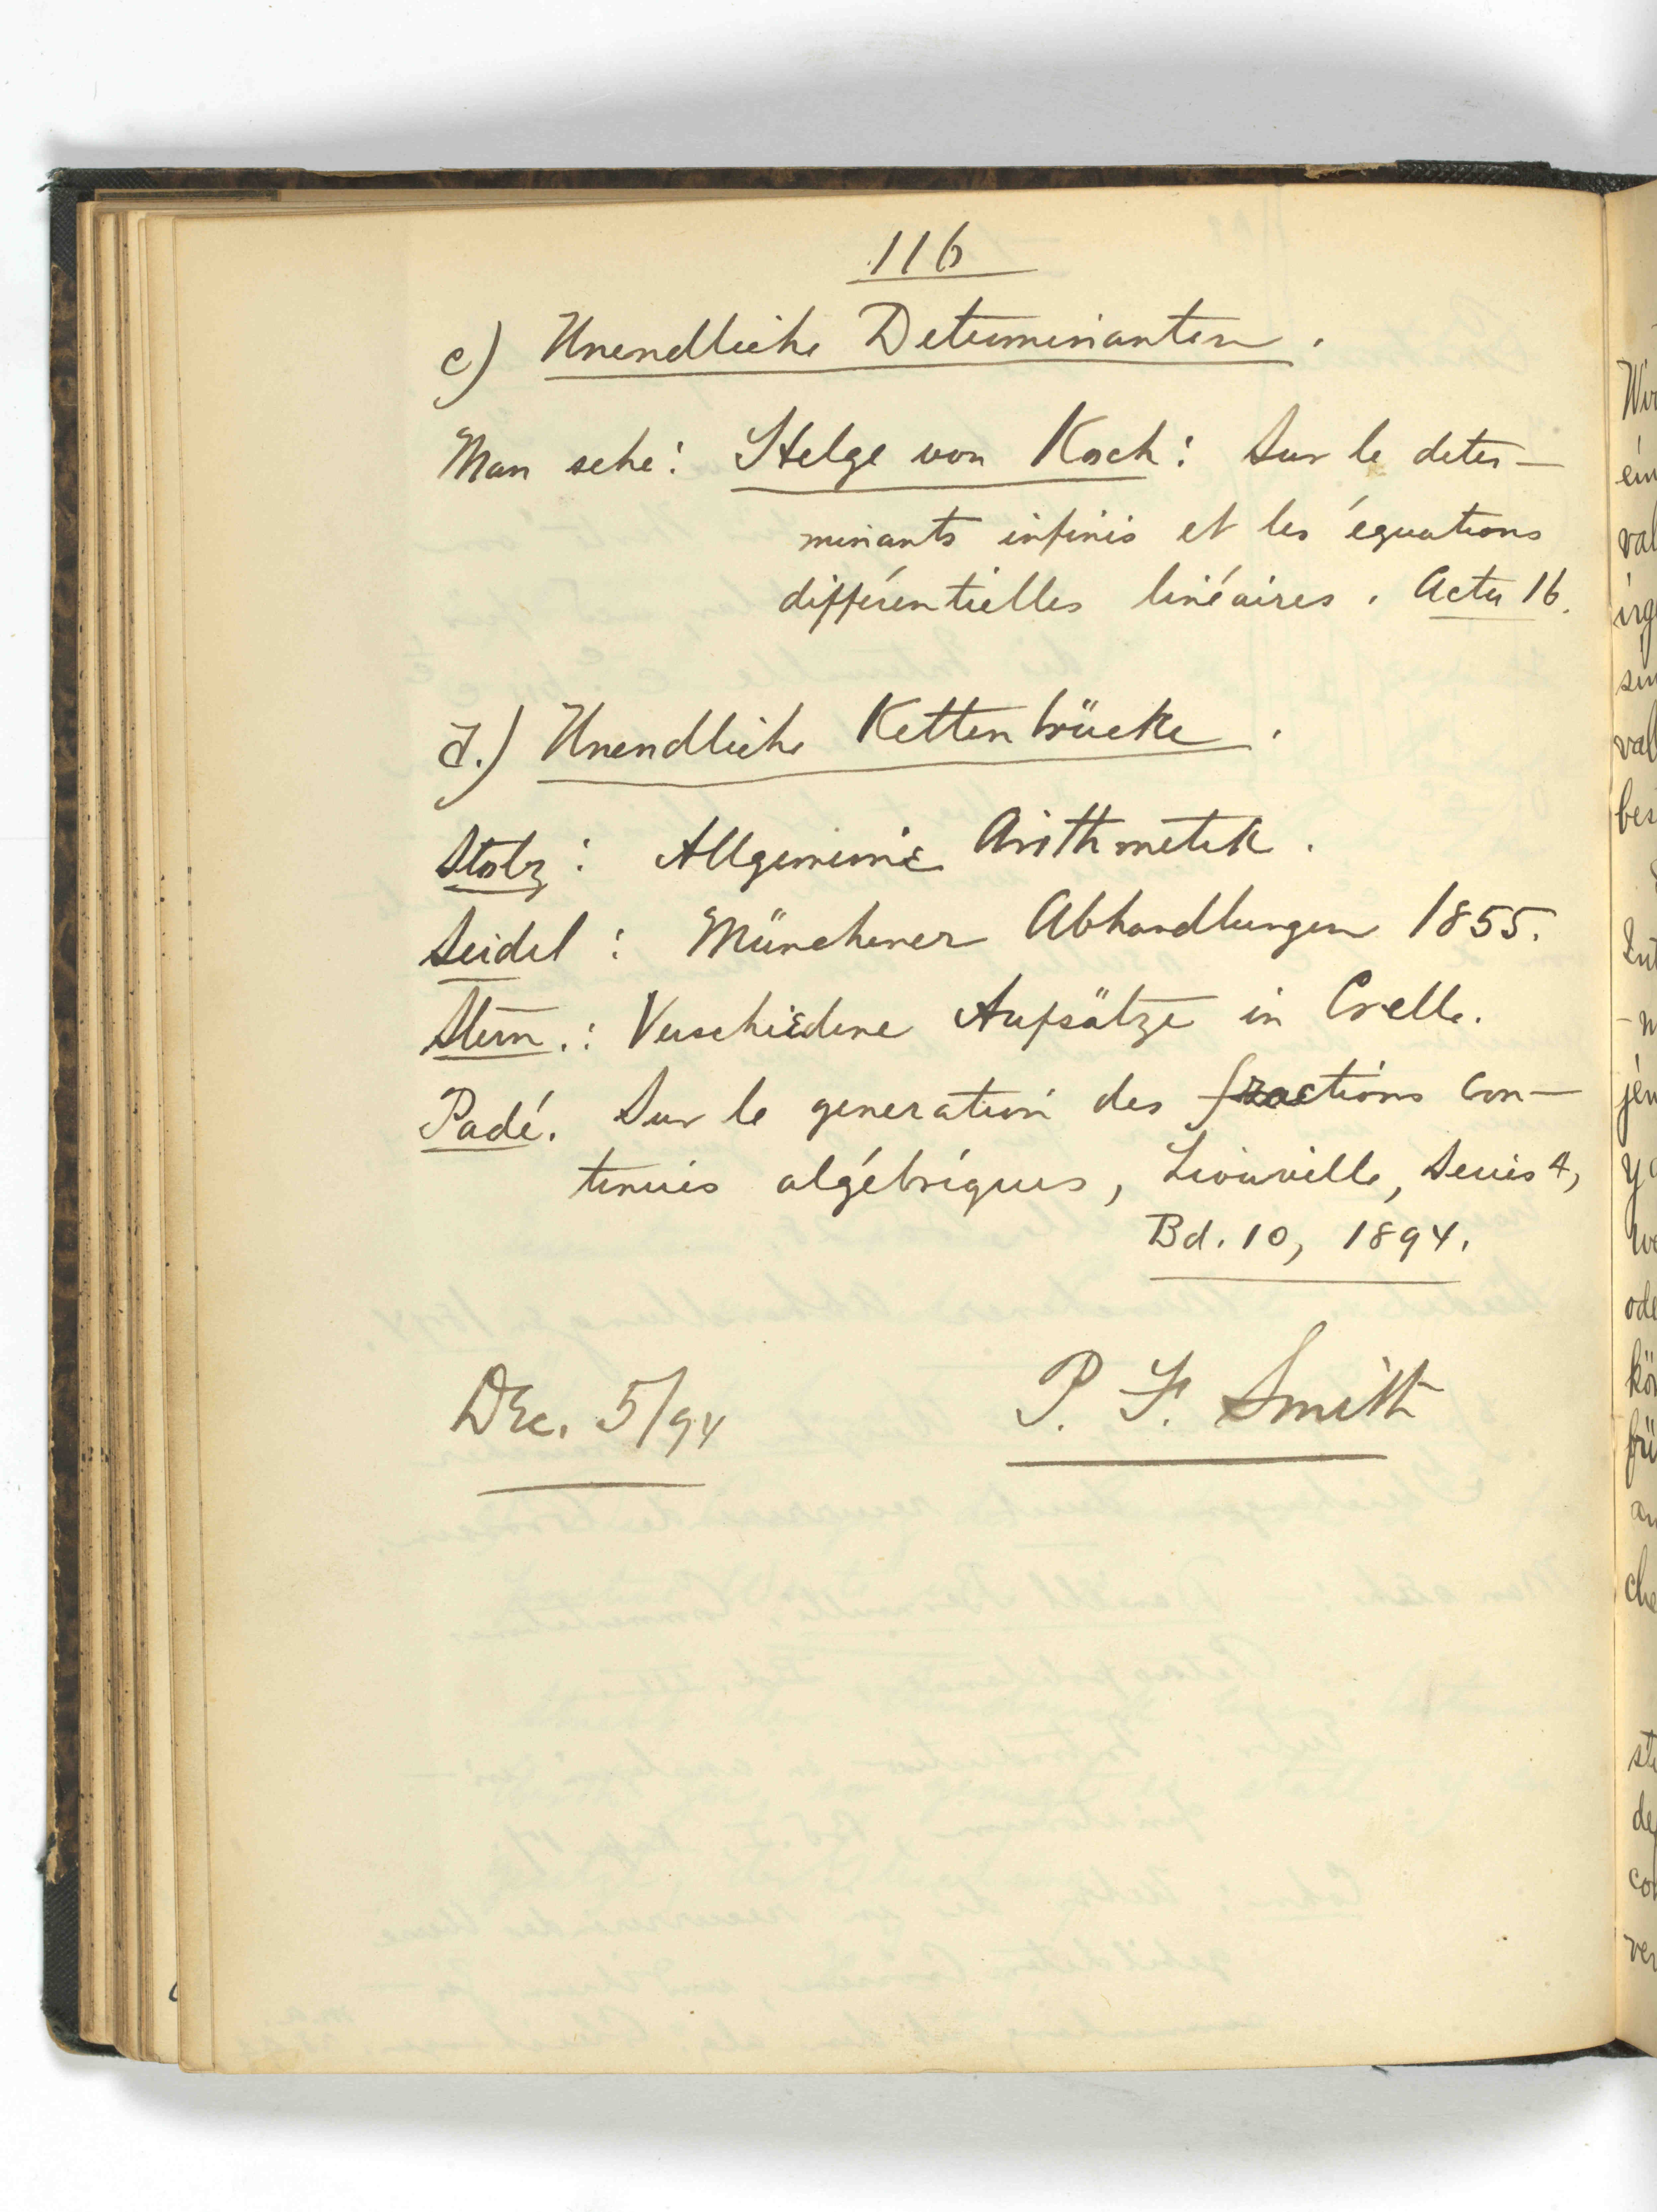 116
c) Unendliche Determinanten.
Man sehe: Helge von Koch: Sur le deter-
minants infinis et les équations
différentielles linéaires. Acta 16.
d.) Unendliche Kettenbrücke.
Stolz: Allgemeine Arithmetik.
Seidel: Münchener Abhandlungen 1855.
Stern.: Verschiedene Aufsätze in Crelle.
Padé. Sur le generation des fractions con-
tinues algébriques, Liouville, Series 4,
Bd. 10, 1894.
Dec. 5/94 P. F. Smith